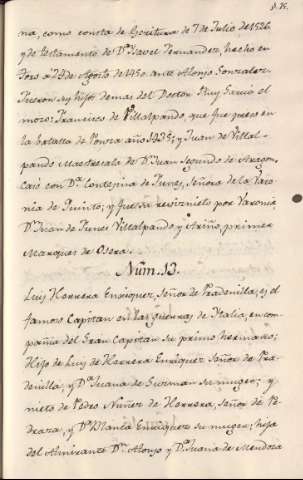 na, como consta de Escritura de 7 de Julio de 1526
y de testamento de D.ª Isavel Fernandez, hecho en
Toro a 29 de Agosto de 1450. ante Alonso Gonzalez.
Fueron sus hijos demas del Doctor Ruy Garcia el
mozo: Francisco de Villalpando, que fue preso en
la batalla de Ponza año 1435; y Juan de Villal-
pando Maestresala de D.n Juan segundo de Aragon,
casó con D.ª Contezina de Funes, Señora de la Baro-
nia de Quinto; y fue su revisnieto por varonia
D.n Juan de Funes Villalpando y Ariño, primer
Marques de Osera.
Núm. 13.
Luis Herrera Enriquez, Señor de Pradenilla, y el
famoso Capitan en las guerras de Italia, en com-
pañia del Gran Capitan su primo hermano;
Hijo de Luis de Herrera Enriquez Señor de Pra-
denilla, y D.ª Juana de Guzman su muger; y
nieto de Pedro Nuñez de Herrera, Señor de Pe-
draza, y D.ª Blanca Enriquez su muger, hija
del Almirante D.n Alonso y D.ª Juana de Mendoza